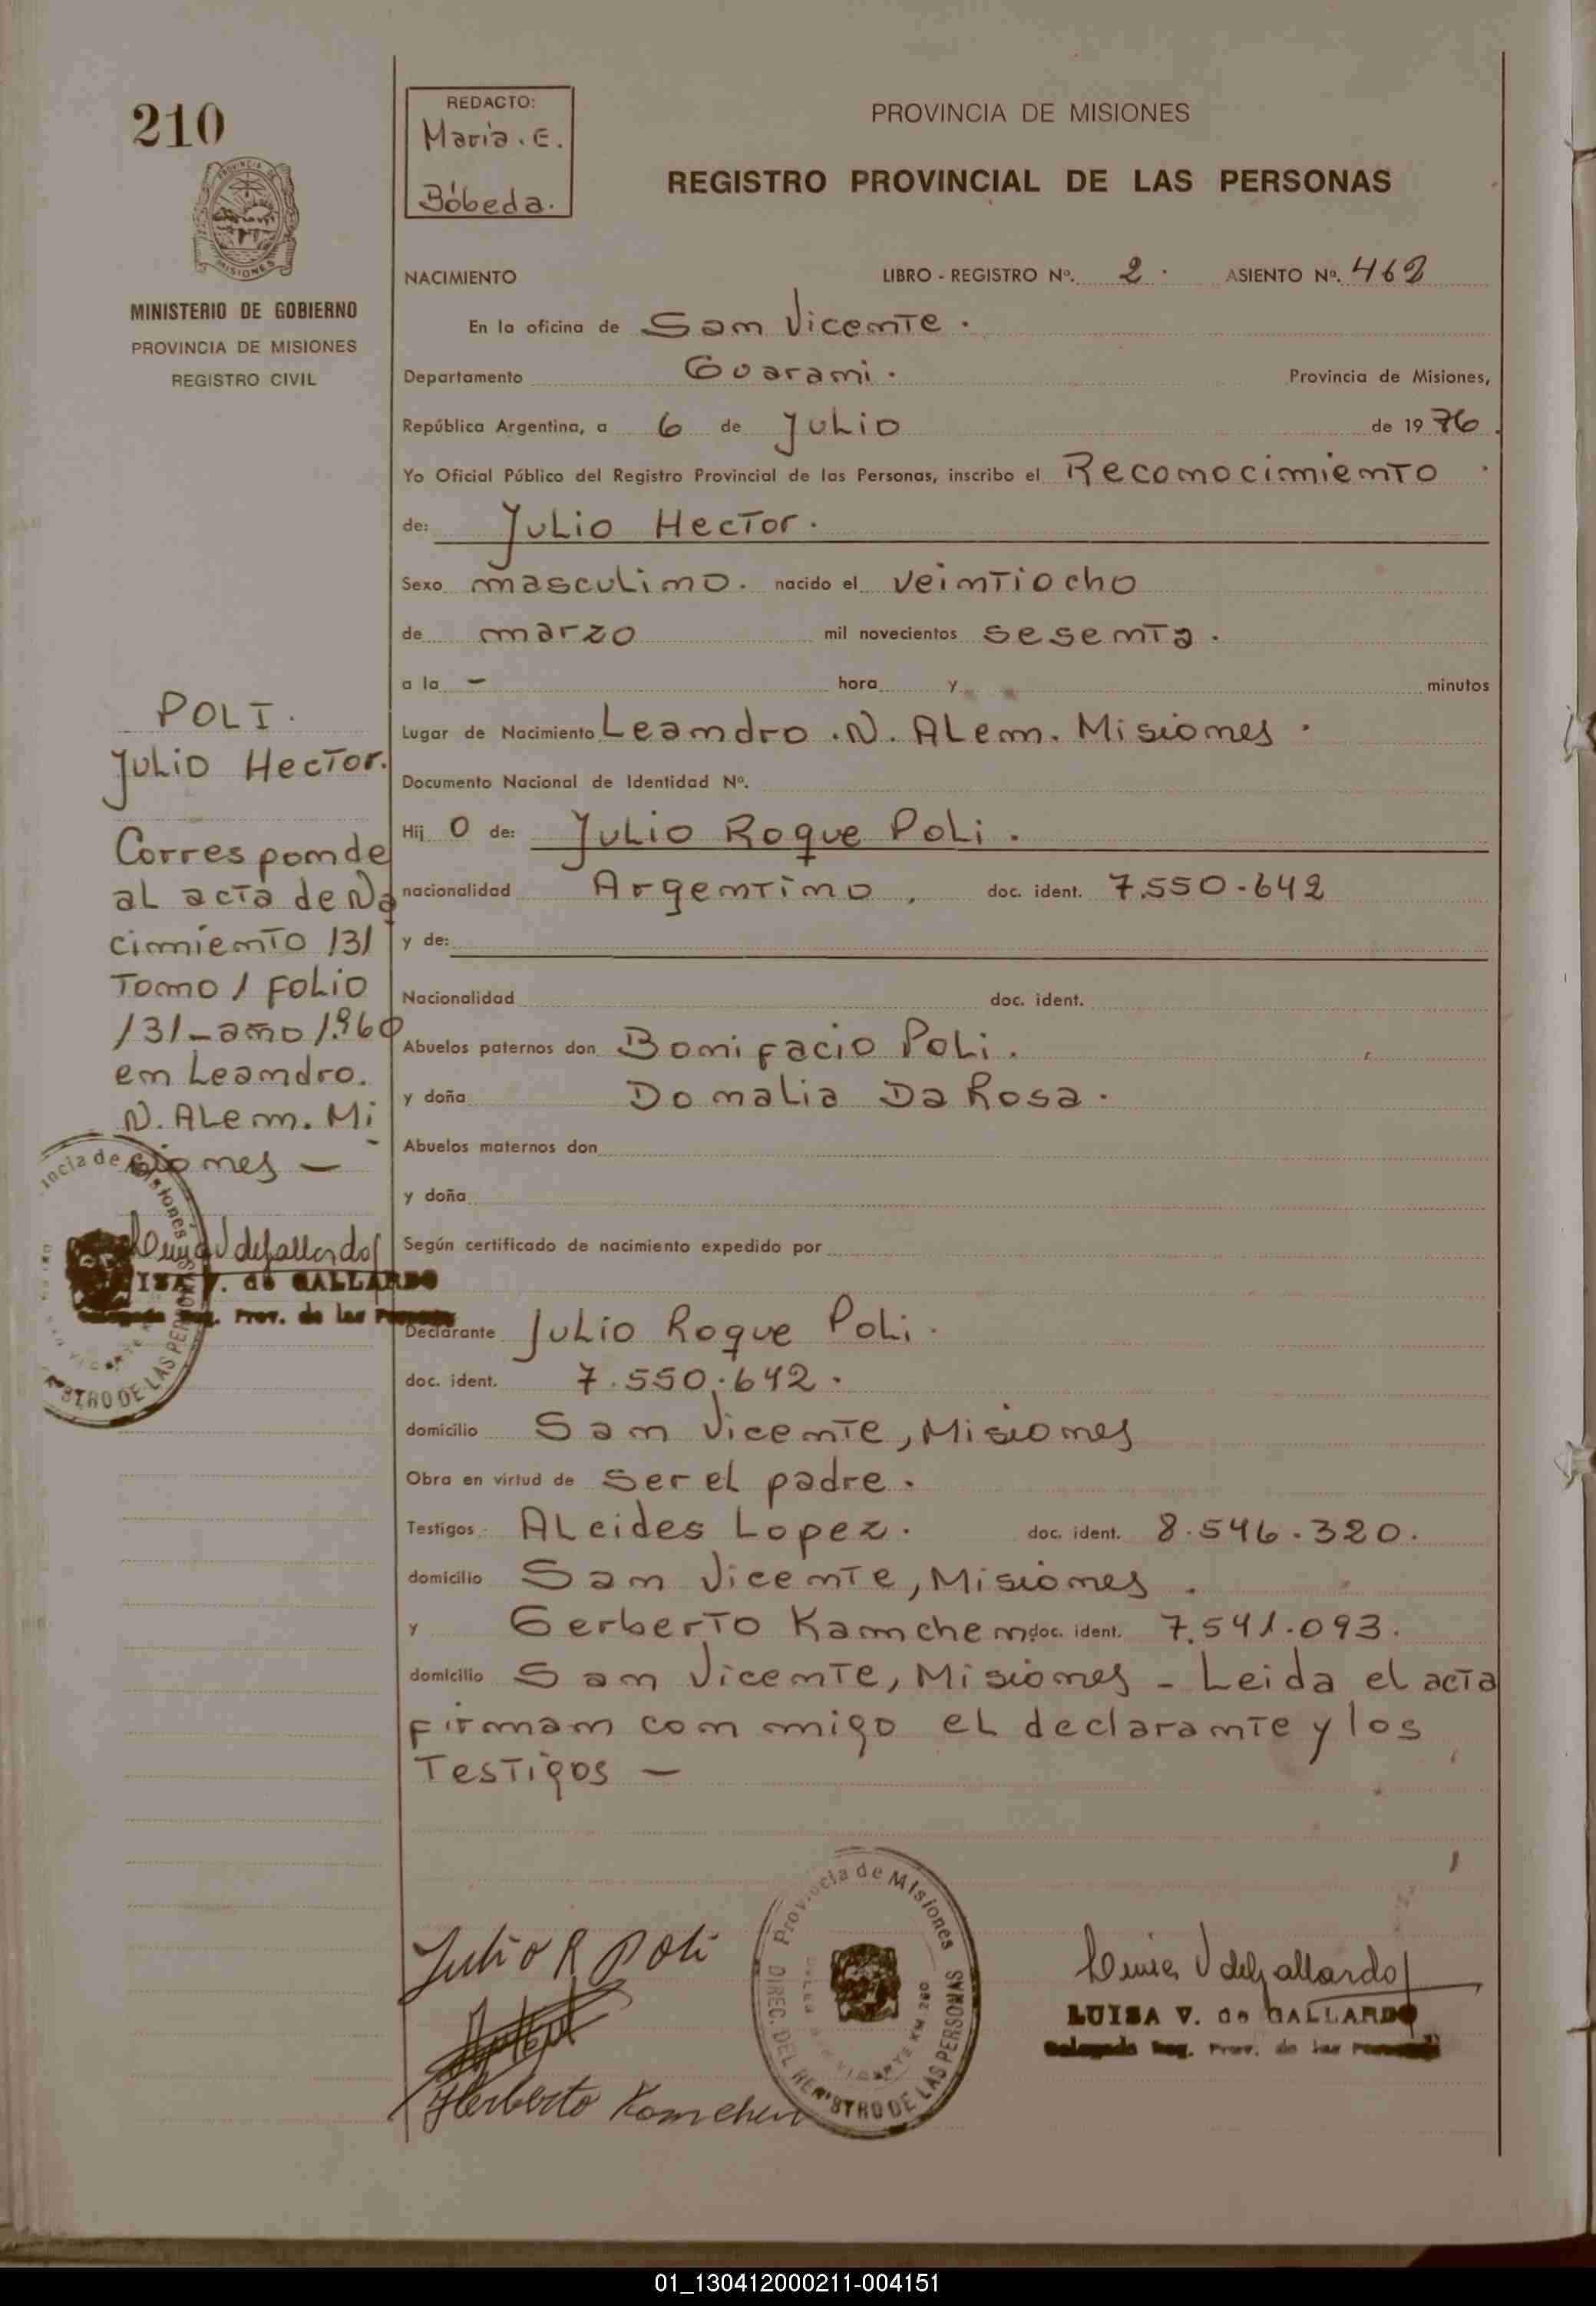 210
MINISTERIO DE GOBIERNO
PROVINCIA DE MISIONES
REGISTRO CIVIL
REDACTO:
Maria. E.
Bóbeda.
PROVINCIA DE MISIONES
REGISTRO PROVINCIAL DE LAS PERSONAS
NACIMIENTO LIBRO - REGISTRO Nº. 2. ASIENTO Nº. 462
En la oficina de San Vicente.
Departamento Guarani. Provincia de Misiones,
República Argentina, a 6 de Julio de 1976.
Yo Oficial Público del Registro Provincial de las Personas, inscribo el Reconocimiento
de: Julio Hector.
Sexo masculino. nacido el veintiocho
de marzo mil novecientos sesenta.
a la - hora y minutos
Lugar de Nacimiento Leandro. N. Alem. Misiones.
Documento Nacional de Identidad Nº.
Hij o de: Julio Roque Poli.
nacionalidad Argentino, doc. ident. 7.550-642
y de:
Nacionalidad doc. ident.
Abuelos paternos don Bonifacio Poli.
y doña Donalia Da Rosa.
Abuelos maternos don
y doña
Según certificado de nacimiento expedido por
Declarante Julio Roque Poli.
doc. ident. 7.550.642.
domicilio San Vicente, Misiones
Obra en virtud de ser el padre.
Testigos Alcides Lopez. doc. ident. 8.546.320.
domicilio San Vicente, Misiones.
y Gerberto Kamchen doc. ident. 7.541.093.
domicilio San Vicente, Misiones - Leida el acta
firman con migo el declarante y los
Testigos -
POLI.
Julio Hector.
Corresponde
al acta de Na
cimiento 131
Tomo 1 Folio
131-año 1.960
en Leandro.
N. Alem. Mi
siones -
Luisa V de Gallardo
ISA V. de GALLARDO
Reg. Prov. de las Personas
Julio R Poli
Herberto Kamchen
Provincia de Misiones
DIREC. DEL REGISTRO DE LAS PERSONAS
Luisa V de Gallardo
LUISA V. de GALLARDO
Delegada Reg. Prov. de las Personas
01_130412000211-004151